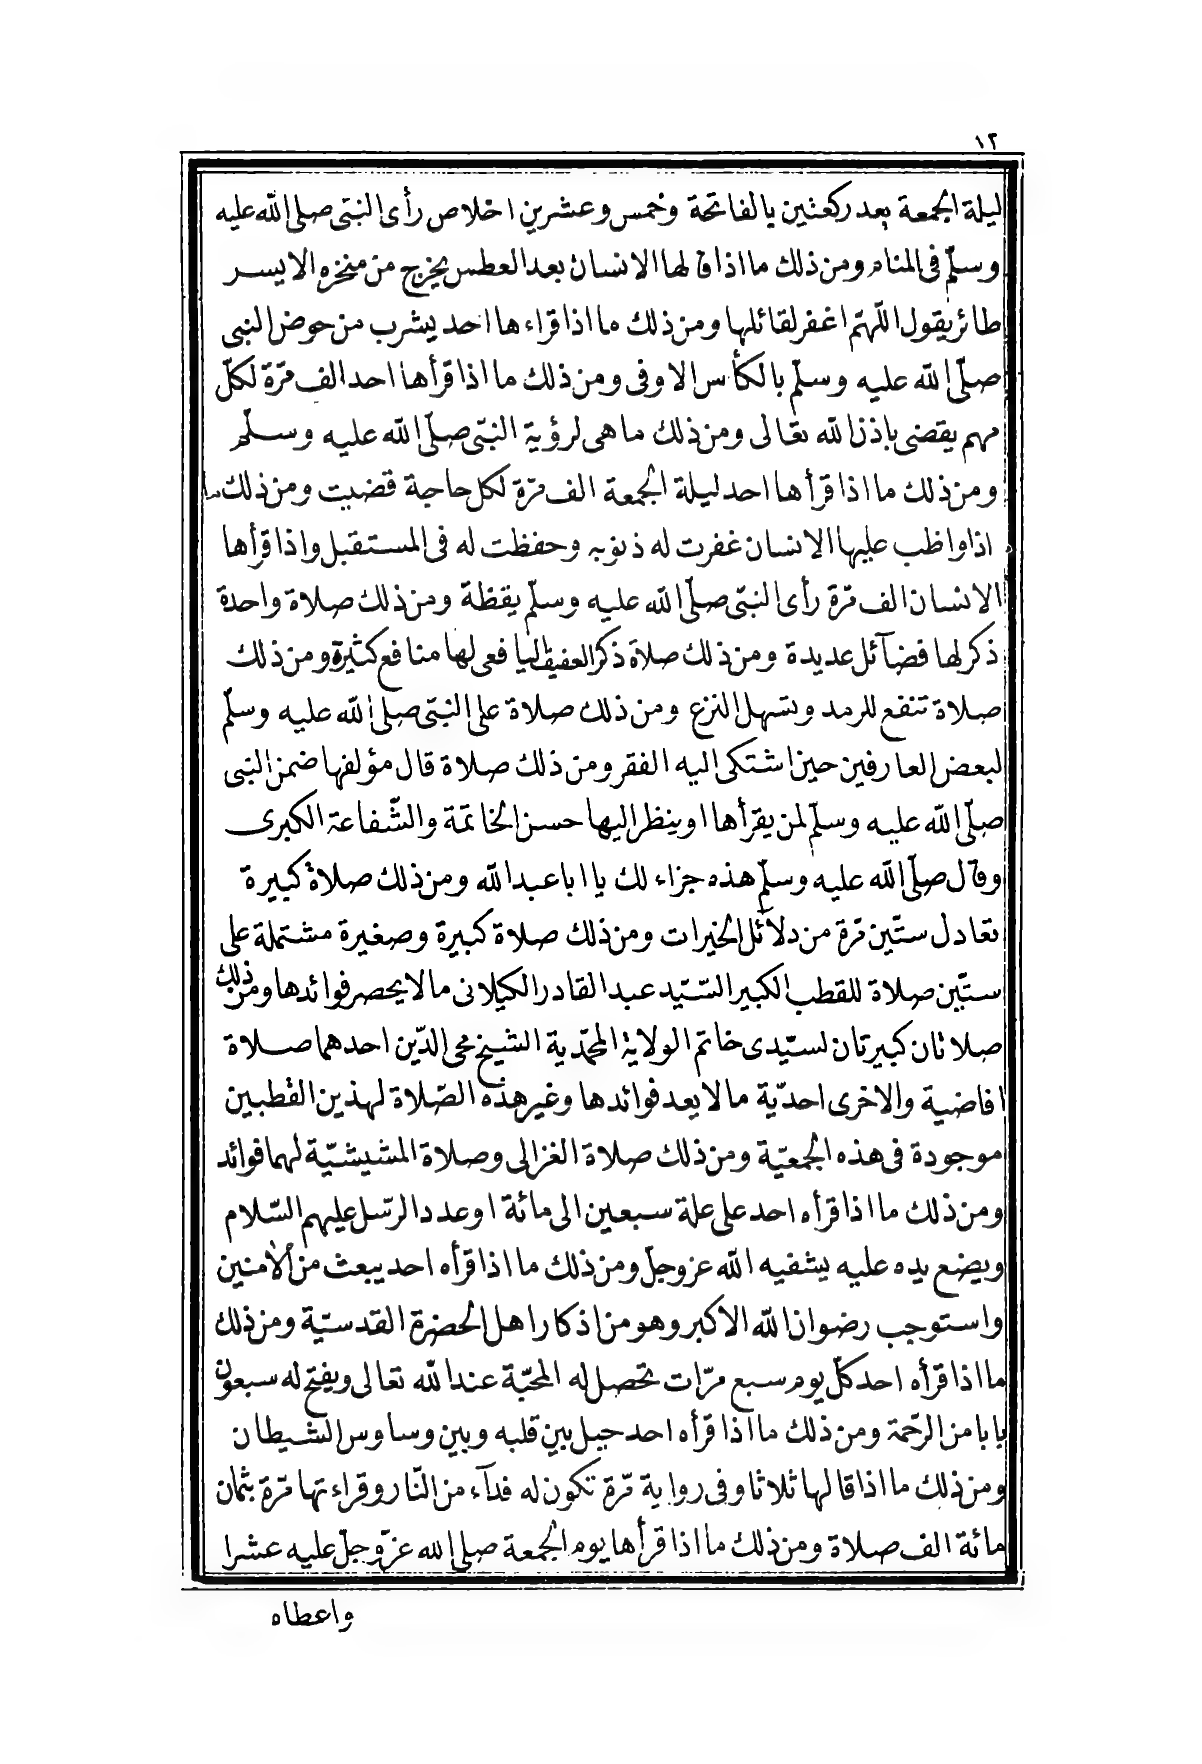 ١٢
ليلة الجمعة بعد ركعتين بالفاتحة وخمس وعشرين اخلاص رأى النبّى صلى الله عليه
وسلّم فى المنام ومن ذلك ما اذا قالها الانسان بعد العطس يخرج من منخره الايسر
طائر يقول اللّهمّ اغفر لقائلها ومن ذلك ما اذا قراءها احد يشرب من حوض النبى
صلّى الله عليه وسلّم بالكأس الاوفى ومن ذلك ما اذا قرأها احد الف مرّة لكلّ
مهم يقضى باذن الله تعالى ومن ذلك ما هى لرؤية النبّى صلّى الله عليه وسلّم
ومن ذلك ما اذا قرأها احد ليلة الجمعة الف مرّة لكل حاجة قضيت ومن ذلك ما
اذا واظب عليها الانسان غفرت له ذنوبه وحفظت له فى المستقبل واذا قرأها
الانسان الف مرّة رأى النبّى صلّى الله عليه وسلّم يقظة ومن ذلك صلاة واحدة
ذكر لها فضآئل عديدة ومن ذلك صلاة ذكر العفيف اليافعى لها منافع كثيرة ومن ذلك
صلاة تنفع للرمد وتسهل النزع ومن ذلك صلاة على النبّى صلى الله عليه وسلّم
لبعض العارفين حين اشتكى اليه الفقر ومن ذلك صلاة قال مؤلفها ضمن النبى
صلّى الله عليه وسلّم لمن يقرأها او ينظر اليها حسن الخاتمة والشّفاعة الكبرى
وقال صلّى الله عليه وسلّم هذه جزاء لك يا ابا عبد الله ومن ذلك صلاة كبيرة
تعادل ستّين مرة من دلائل الخيرات ومن ذلك صلاة كبيرة وصغيرة مشتملة على
ستّين صلاة للقطب الكبير السّيّد عبد القادر الكيلانى ما لا يحصر فوائدها ومن ذلك
صلاتان كبيرتان لسيّدى خاتم الولاية المحمّدية الشيخ محى الدّين احدهما صلاة
افاضية والاخرى احدّية ما لا يعد فوائدها وغير هذه الصّلاة لهذين القطبين
موجودة فى هذه الجمعيّة ومن ذلك صلاة الغزالى وصلاة المشيشيّة لهما فوائد
ومن ذلك ما اذا قرأه احد على علة سبعين الى مائة او عدد الرّسل عليهم السّلام
ويضع يده عليه يشفيه الله عز وجلّ ومن ذلك ما اذا قرأه احد يبعث من الامنين
واستوجب رضوان الله الاكبر وهو من اذكار اهل الحضرة القدسيّة ومن ذلك
ما اذا قرأه احد كلّ يوم سبع مرّات تحصل له المحبّة عند الله تعالى ويفتح له سبعون
بابا من الرّحمة ومن ذلك ما اذا قرأه احد حيل بين قلبه وبين وساوس الشيطان
ومن ذلك ما اذا قالها ثلاثا وفى رواية مّرة تكون له فدآء من النّار وقراءتها مرّة بثمان
مائة الف صلاة ومن ذلك ما اذا قرأها يوم الجمعة صلى الله عزّ وجلّ عليه عشرا
واعطاه